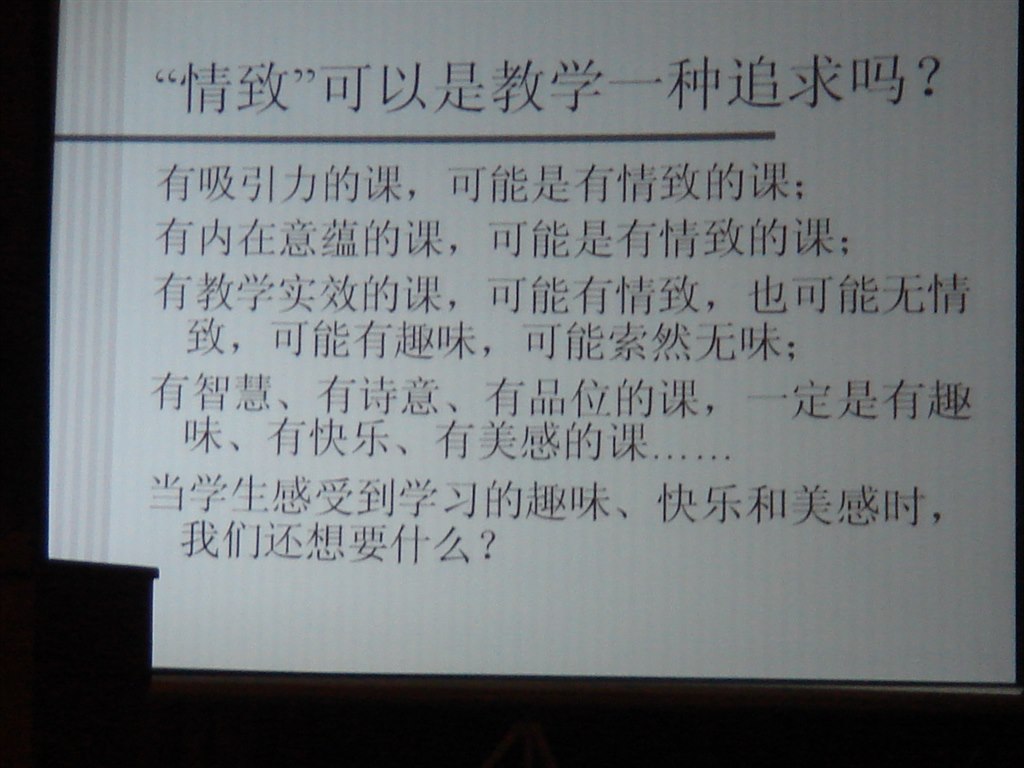 “情致”可以是教学一种追求吗？
有吸引力的课，可能是有情致的课；
有内在意蕴的课，可能是有情致的课；
有教学实效的课，可能有情致，也可能无情
致，可能有趣味，可能索然无味；
有智慧、有诗意、有品位的课，一定是有趣
味、有快乐、有美感的课……
当学生感受到学习的趣味、快乐和美感时，
我们还想要什么？